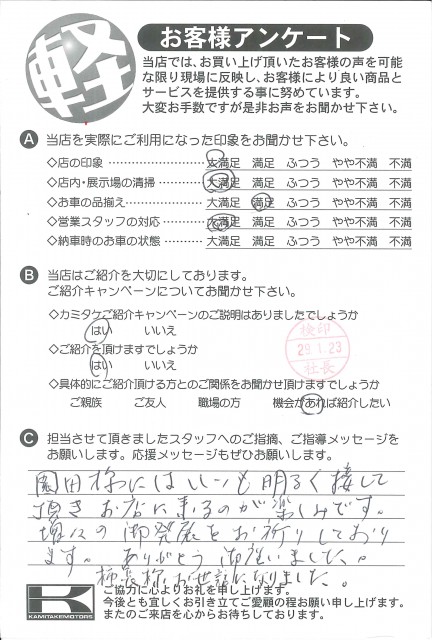 軽
お客様アンケート
当店では、お買い上げ頂いたお客様の声を可能
な限り現場に反映し、お客様により良い商品と
サービスを提供する事に努めています。
大変お手数ですが是非お声をお聞かせ下さい。
A 当店を実際にご利用になった印象をお聞かせ下さい。
◇店の印象 ………………… 大満足 満足 ふつう やや不満 不満
◇店内・展示場の清掃………… 大満足 満足 ふつう やや不満 不満
◇お車の品揃え ……………… 大満足 満足 ふつう やや不満 不満
◇営業スタッフの対応………… 大満足 満足 ふつう やや不満 不満
◇納車時のお車の状態 ……… 大満足 満足 ふつう やや不満 不満
B 当店はご紹介を大切にしております。
ご紹介キャンペーンについてお聞かせ下さい。
◇カミタケご紹介キャンペーンのご説明はありましたでしょうか
はい いいえ
◇ご紹介を頂けますでしょうか
はい いいえ
◇具体的にご紹介頂ける方とのご関係をお聞かせ頂けますでしょうか
ご親族 ご友人 職場の方 機会があれば紹介したい
検印
29.1.23
社長
C 担当させて頂きましたスタッフへのご指摘、ご指導メッセージを
お願いします。応援メッセージもぜひお願いします。
園田様にはいつも明るく接して
頂きお店に来るのが楽しみです。
増々の御発展をお祈りしており
ます。ありがとう御座いました。
様お世話になりました。
KAMITAKEMOTORS
ご協力に心よりお礼を申し上げます。
今後とも宜しくお引き立てご愛顧の程お願い申し上げます。
またのご来店を心からお待ちしております。